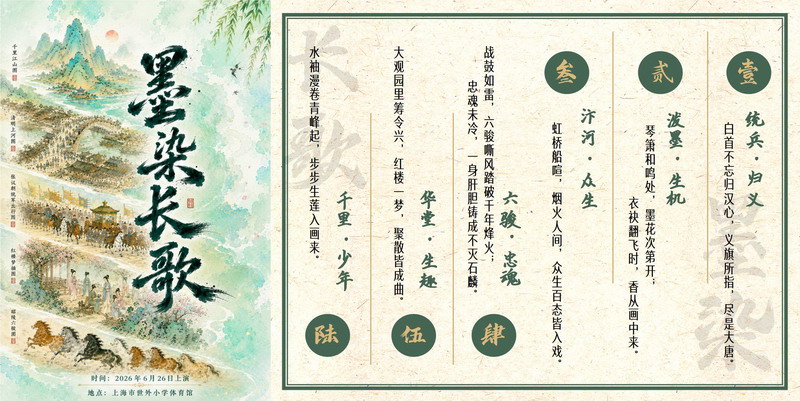 墨染长歌
千里江山图
清明上河图
张议潮统军出行图
红楼梦图
昭陵六骏图
时间：2026年6月26日上演
地点：上海市世外小学体育馆
长歌
墨染
壹
统兵·归义
白首不忘归汉心，义旗所指，尽是大唐。
贰
泼墨·生机
琴箫和鸣处，墨花次第开；
衣袂翻飞时，香从画中来。
叁
汴河·众生
虹桥船喧，烟火人间，众生百态皆入戏。
肆
六骏·忠魂
战鼓如雷，六骏嘶风踏破千年烽火；
忠魂未冷，一身肝胆铸成不灭石麟。
伍
华堂·生趣
大观园里筹令兴，红楼一梦，聚散皆成曲。
陆
千里·少年
水袖漫卷青峰起，步步生莲入画来。